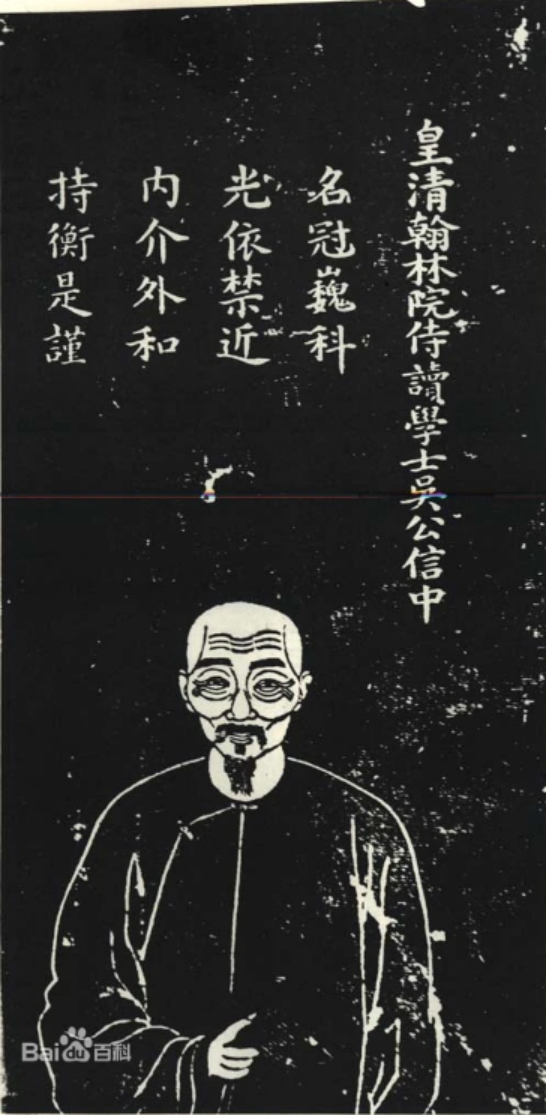 皇清翰林院侍讀學士吳公信中
名冠巍科
光依禁近
内介外和
持衡是謹
Bai du 百科